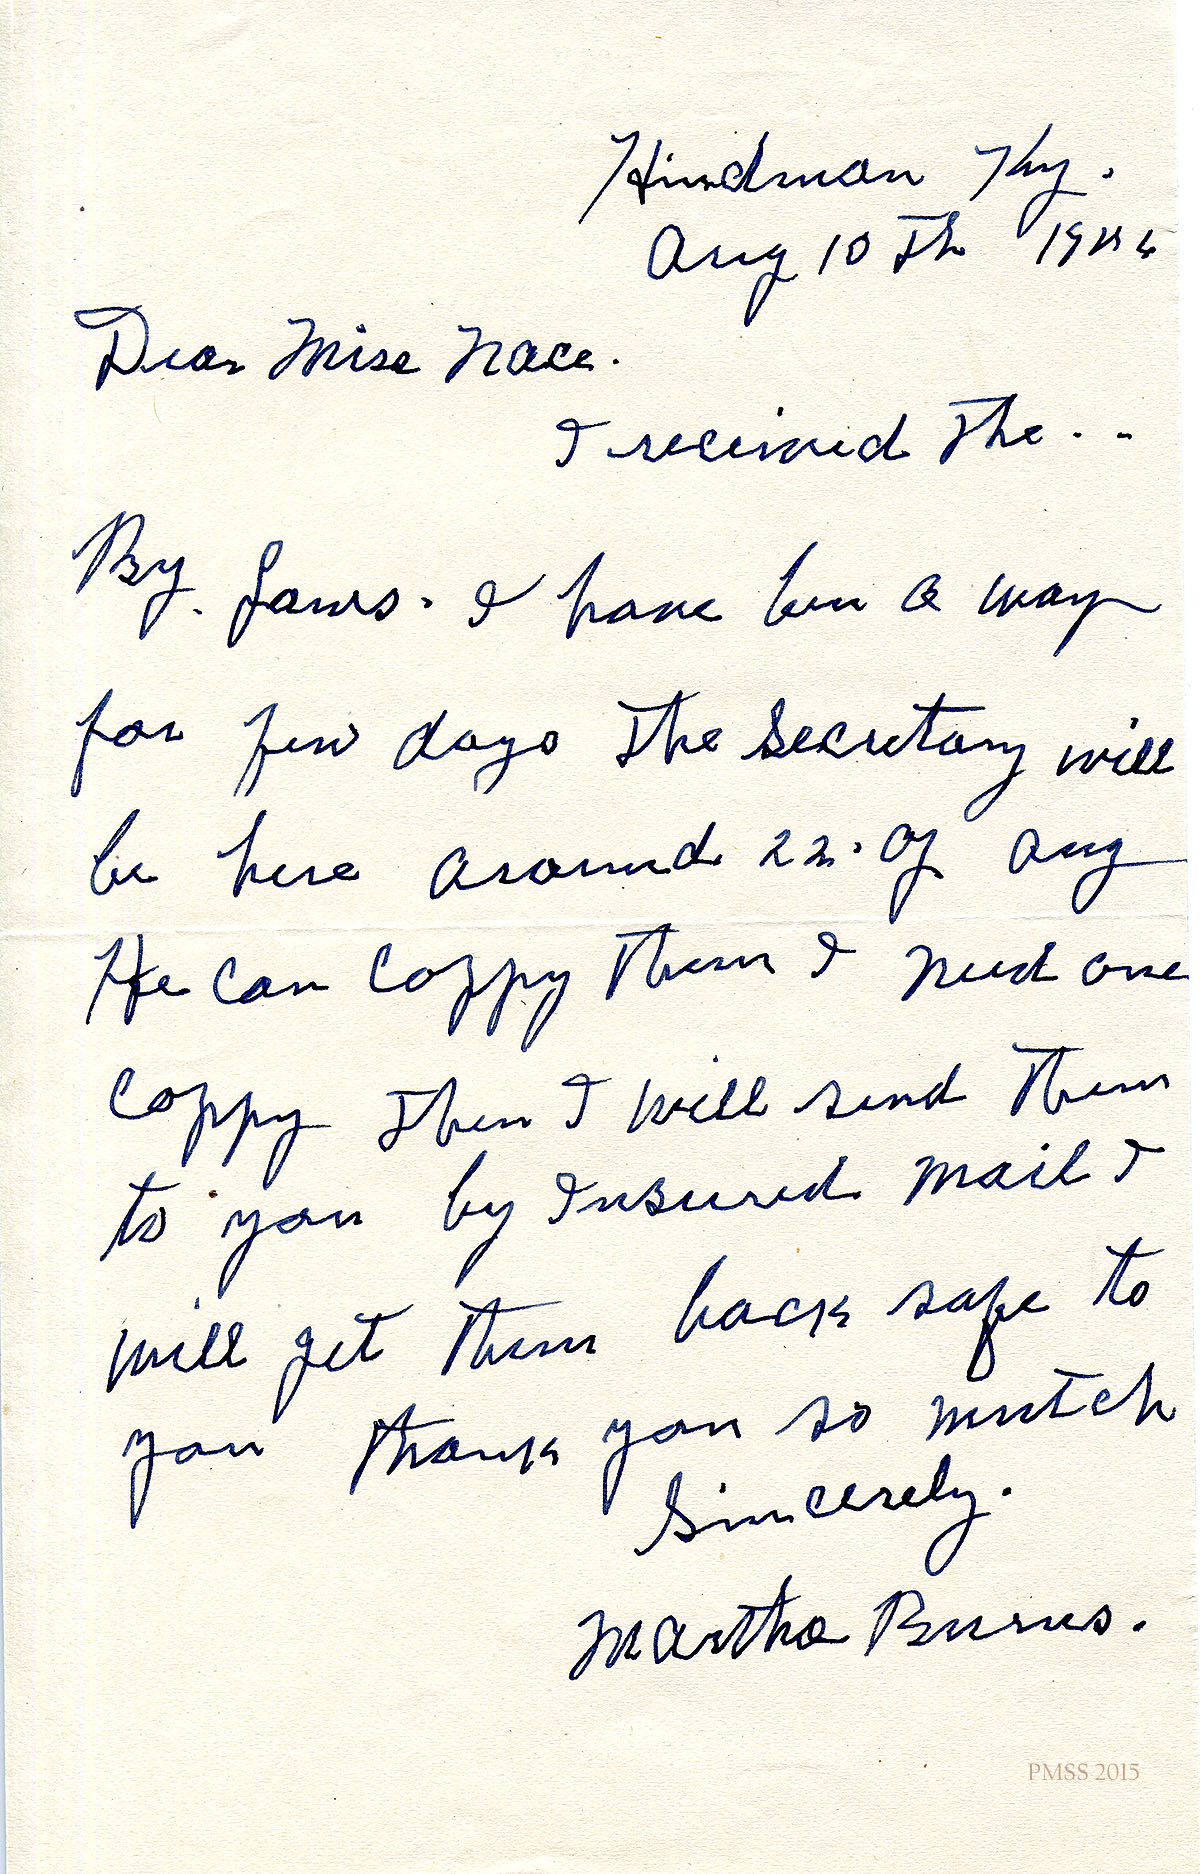 Hindman Ky.
Aug 10 Th 1944
Dear Mise Nace.
I received The . .
By. Laws. I have ben a way
for few days The Secretary will
be here around 22. Of Aug
He can Coppy Them I need one
Coppy Then I will send Them
to you by Insured mail I
will get Them back safe to
you Thank you so mutch
Sincerely.
Martha Burns.
PMSS 2015